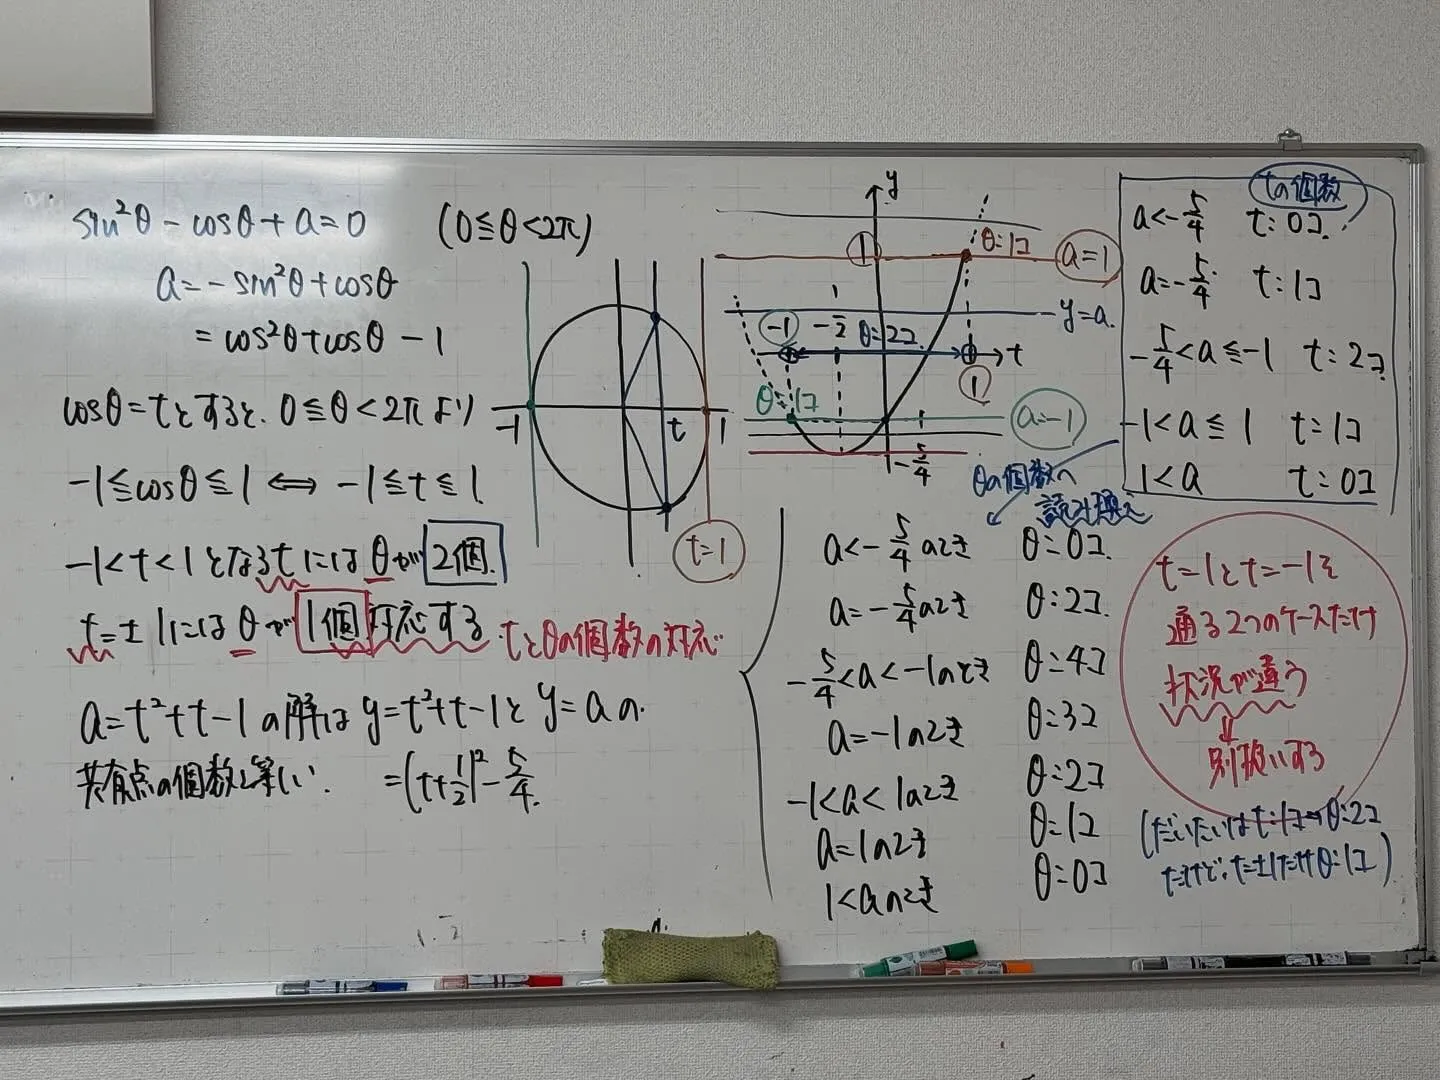 sin²θ - cosθ + a = 0 (0≦θ<2π)
a = - sin²θ + cosθ
= cos²θ + cosθ - 1
cosθ = tとすると、0≦θ<2πより
-1≦cosθ≦1 ⇔ -1≦t≦1
-1<t<1となるtにはθが2個.
t=±1にはθが1個対応する
tとθの個数の対応
a=t²+t-1の解はy=t²+t-1とy=aの.
共有点の個数と等しい.
=(t+1/2)²-5/4.
-1
t
1
t=1
y
1
θ:1コ
a=1
y=a.
-1
-1/2
θ:2コ.
t
1
θ:1コ
a=-1
-5/4
tの個数
a<-5/4 t:0コ.
a=-5/4 t:1コ
-5/4<a≦-1 t:2コ.
-1<a≦1 t:1コ
1<a t:0コ
θの個数へ
読み換え
a<-5/4のとき θ:0コ.
a=-5/4のとき θ:2コ.
-5/4<a<-1のとき θ:4コ
a=-1のとき θ:3コ
-1<a<1のとき θ:2コ
a=1のとき θ:1コ
1<aのとき θ:0コ
t=1とt=-1を
通る2つのケースだけ
状況が違う
↓
別扱いする
(だいたいはt:1コ→θ:2コ
だけど、t=±1だけθ:1コ)